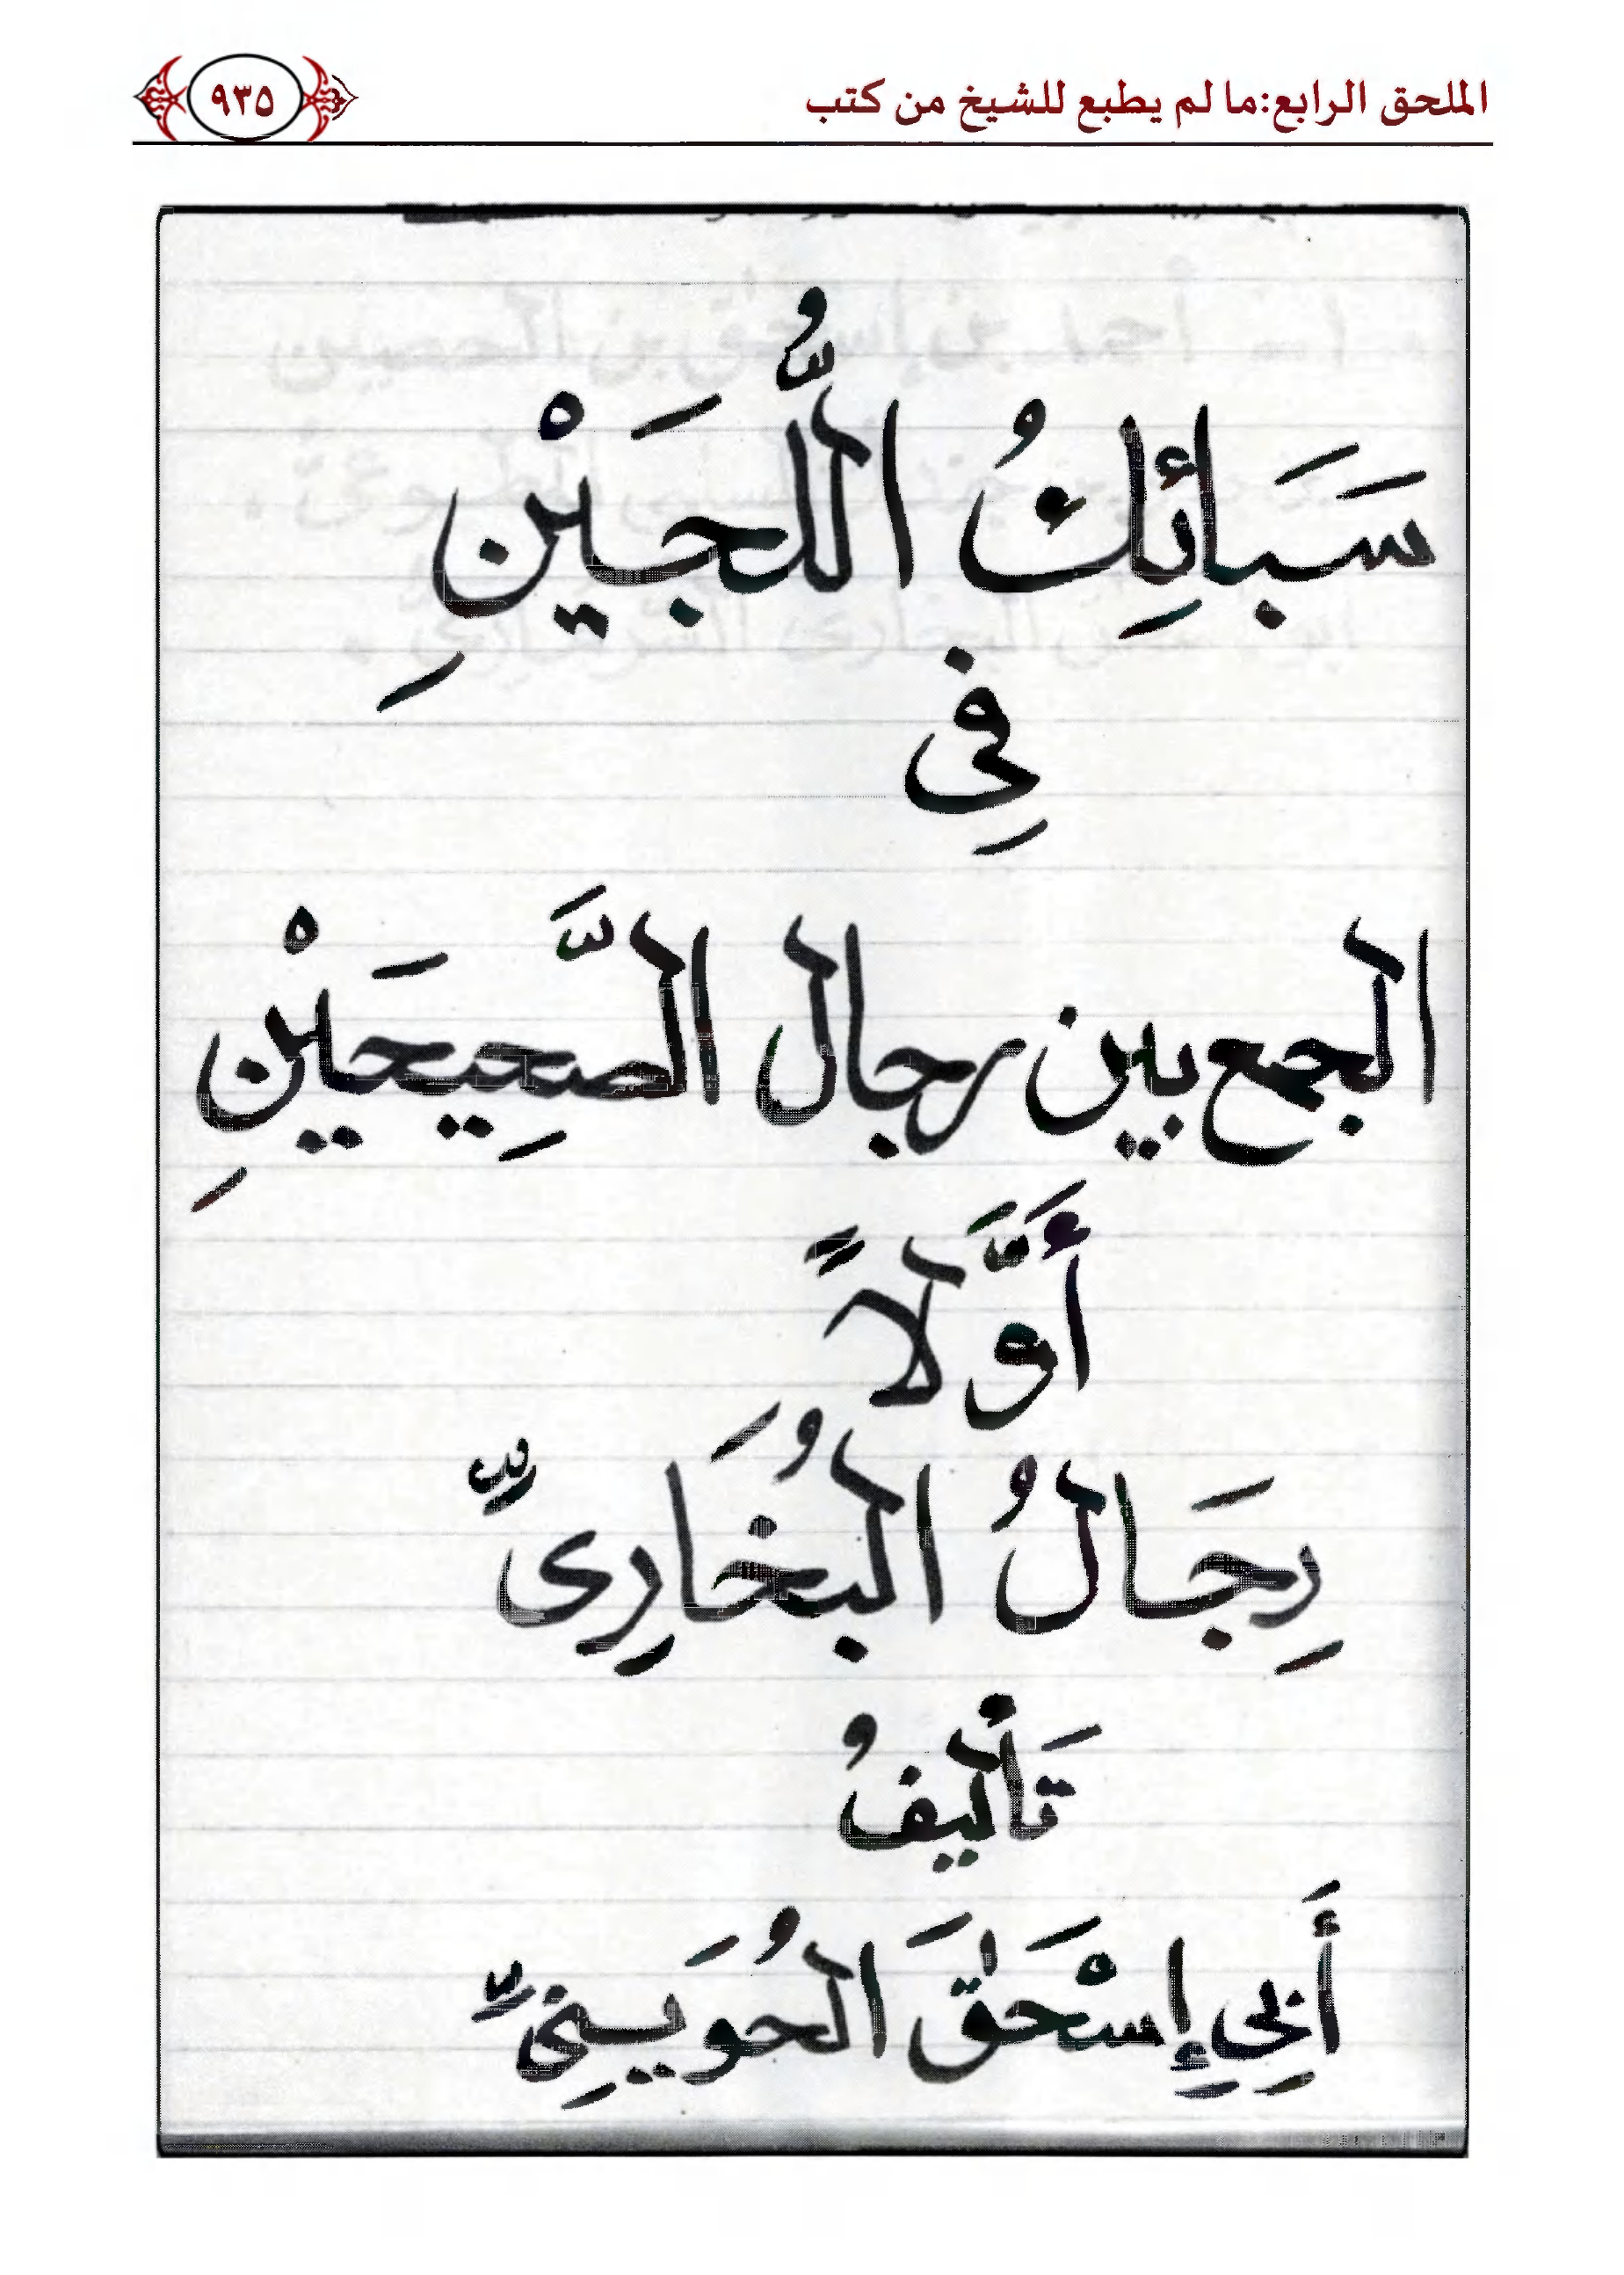 الملحق الرابع:ما لم يطبع للشيخ من كتب
٩٣٥
سَبَائِكُ اللُّجَيْنِ
فِى
الجمع بين رجال الصَّحِيحَيْنِ
أَوَّلاً
رِجَالُ البُخَارِىِّ
تَأْليفُ
أَبِي إِسْحٰقَ الحُوَيـنِىِّ